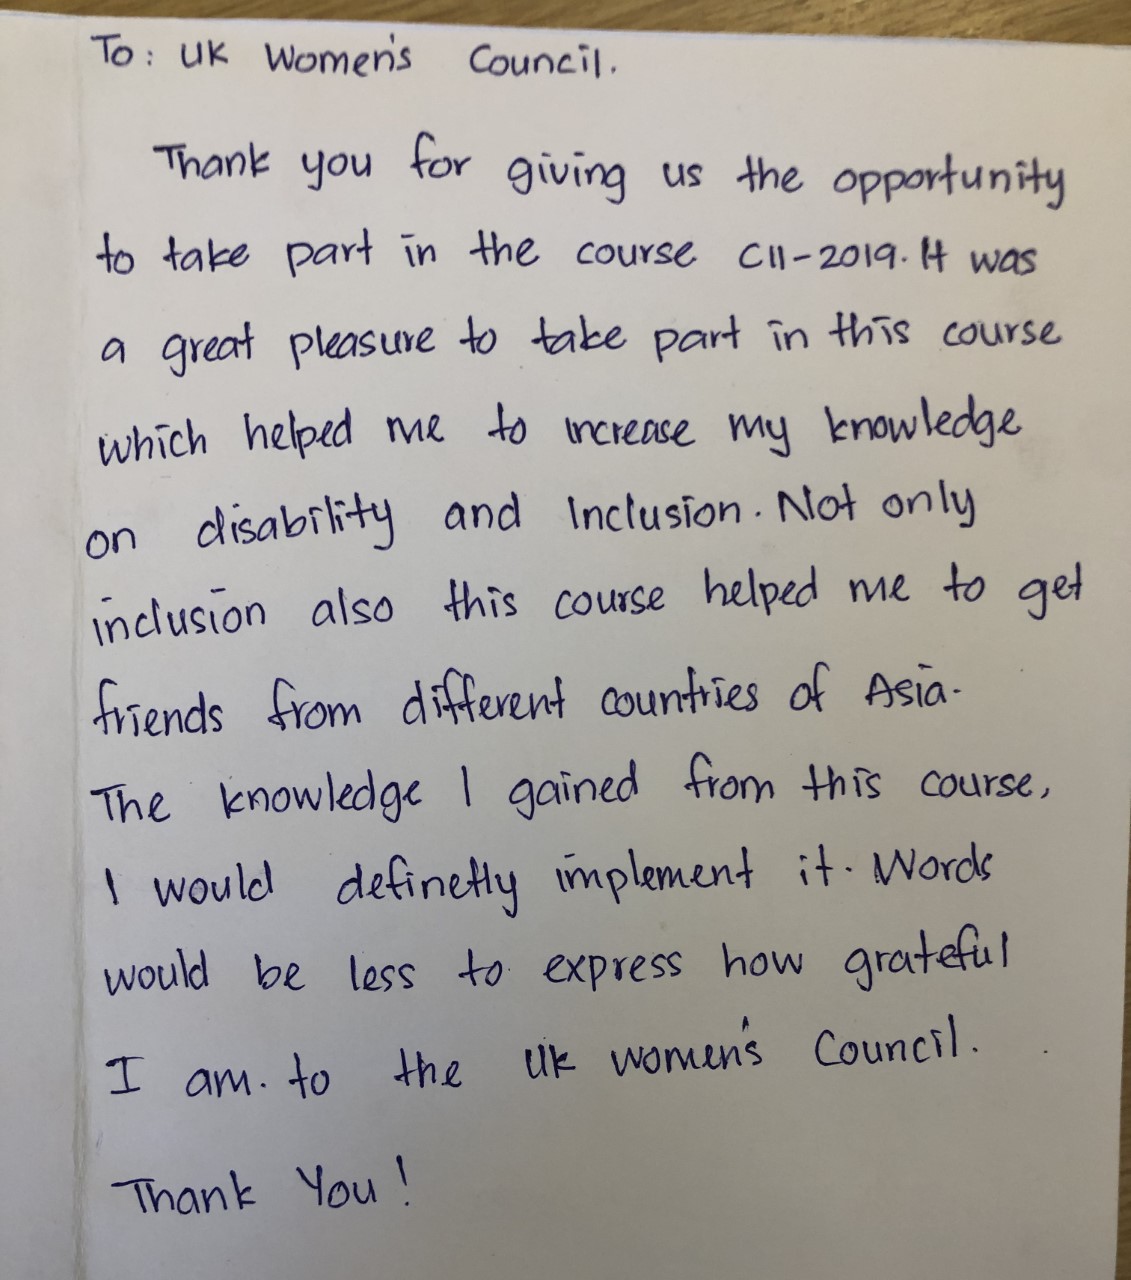 To: UK Women's Council.
Thank you for giving us the opportunity
to take part in the course CII-2019. It was
a great pleasure to take part in this course
which helped me to increase my knowledge
on disability and Inclusion. Not only
inclusion also this course helped me to get
friends from different countries of Asia.
The knowledge I gained from this course,
I would definetly implement it. Words
would be less to express how grateful
I am. to the UK women's Council.
Thank You!